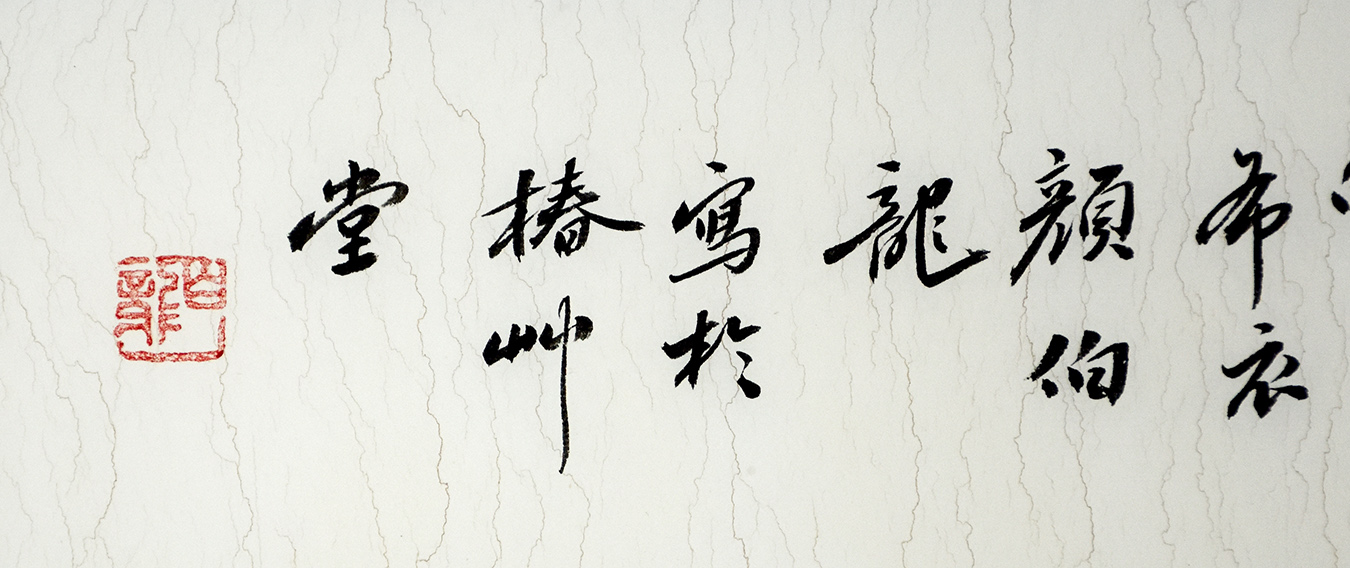 希衣
顏伯
龍
寫於
椿艸
堂
伯龍